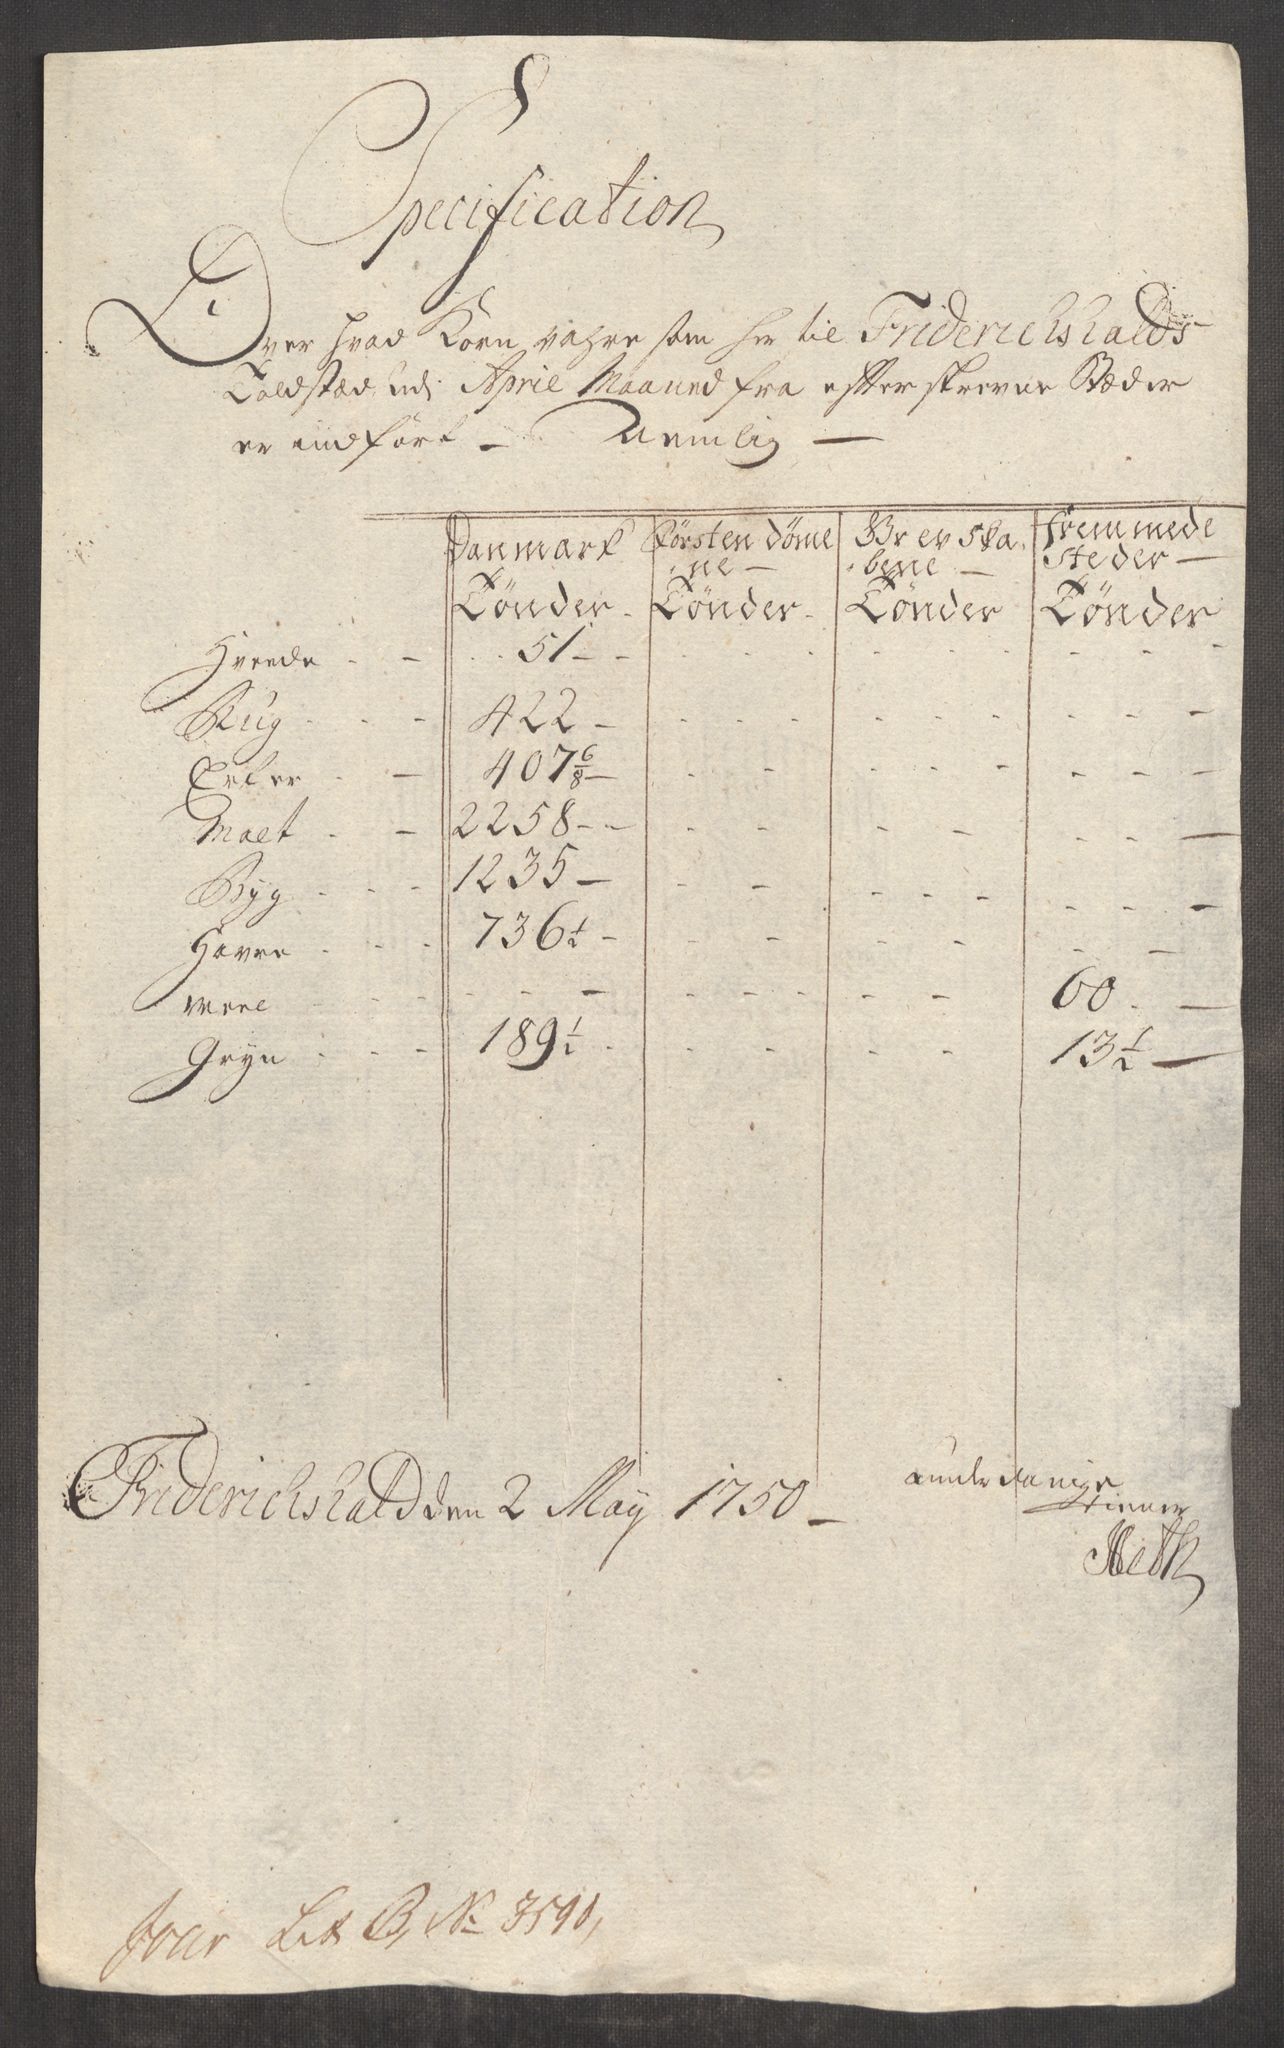 Specification
Over hvad Korn vahre som her til Friderichshalds
Toldstæd udi April Maaned fra efterskrevne Stæder
er indført - Nemlig
Danmark Förstendöme Grevska fremmede
ne bene steder
Tönder Tönder Tönder Tönder
Hvede 51
Rug 422
Erter 407 6/8
Malt 2258
Byg 1235
Havre 736 1/2
Meel 60
Gryn 189 1/2 13 1/2
Friderichshald den 2 May 1750
underdanige
tienner
Jour Lit B, No 3590,